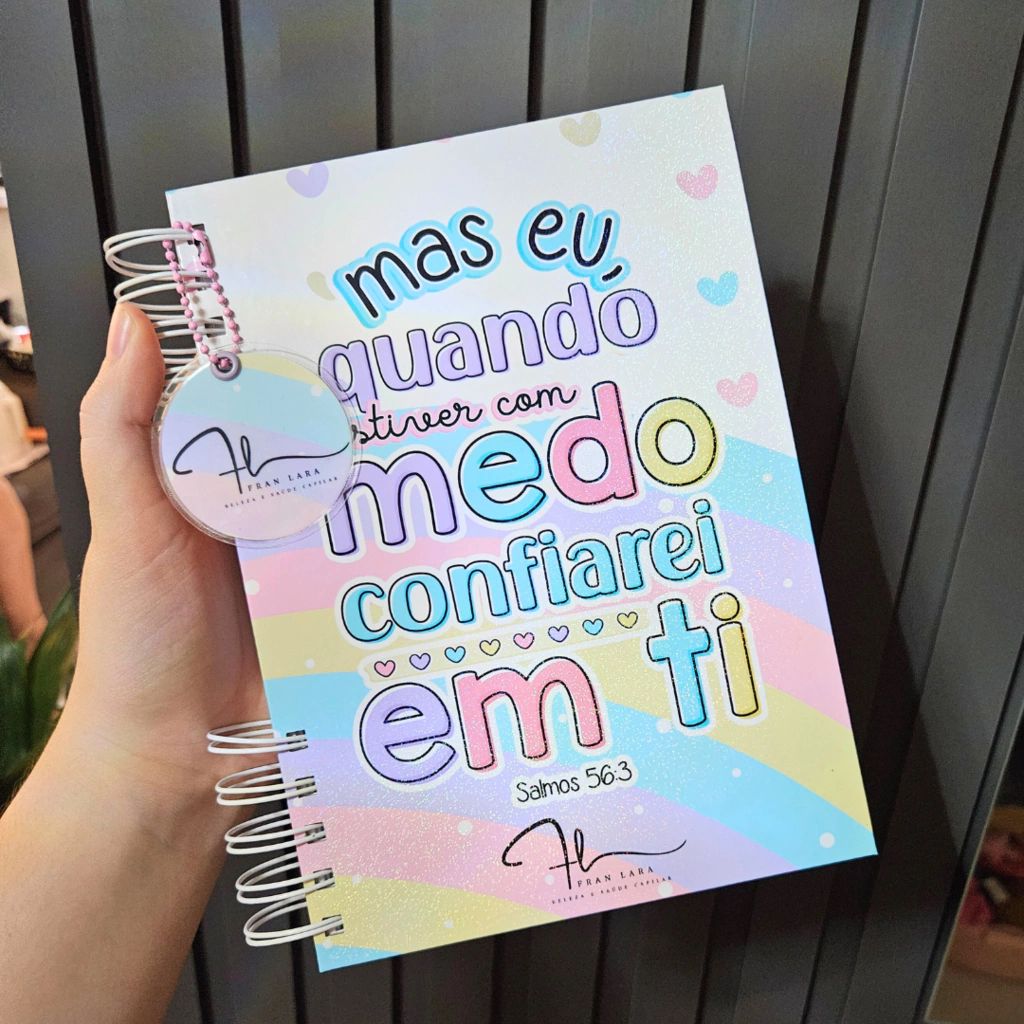 mas eu,
quando
estiver com
medo
confiarei
em ti
Salmos 56:3
FL
FRAN LARA
BELEZA E SAÚDE CAPILAR
FL
FRAN LARA
BELEZA E SAÚDE CAPILAR